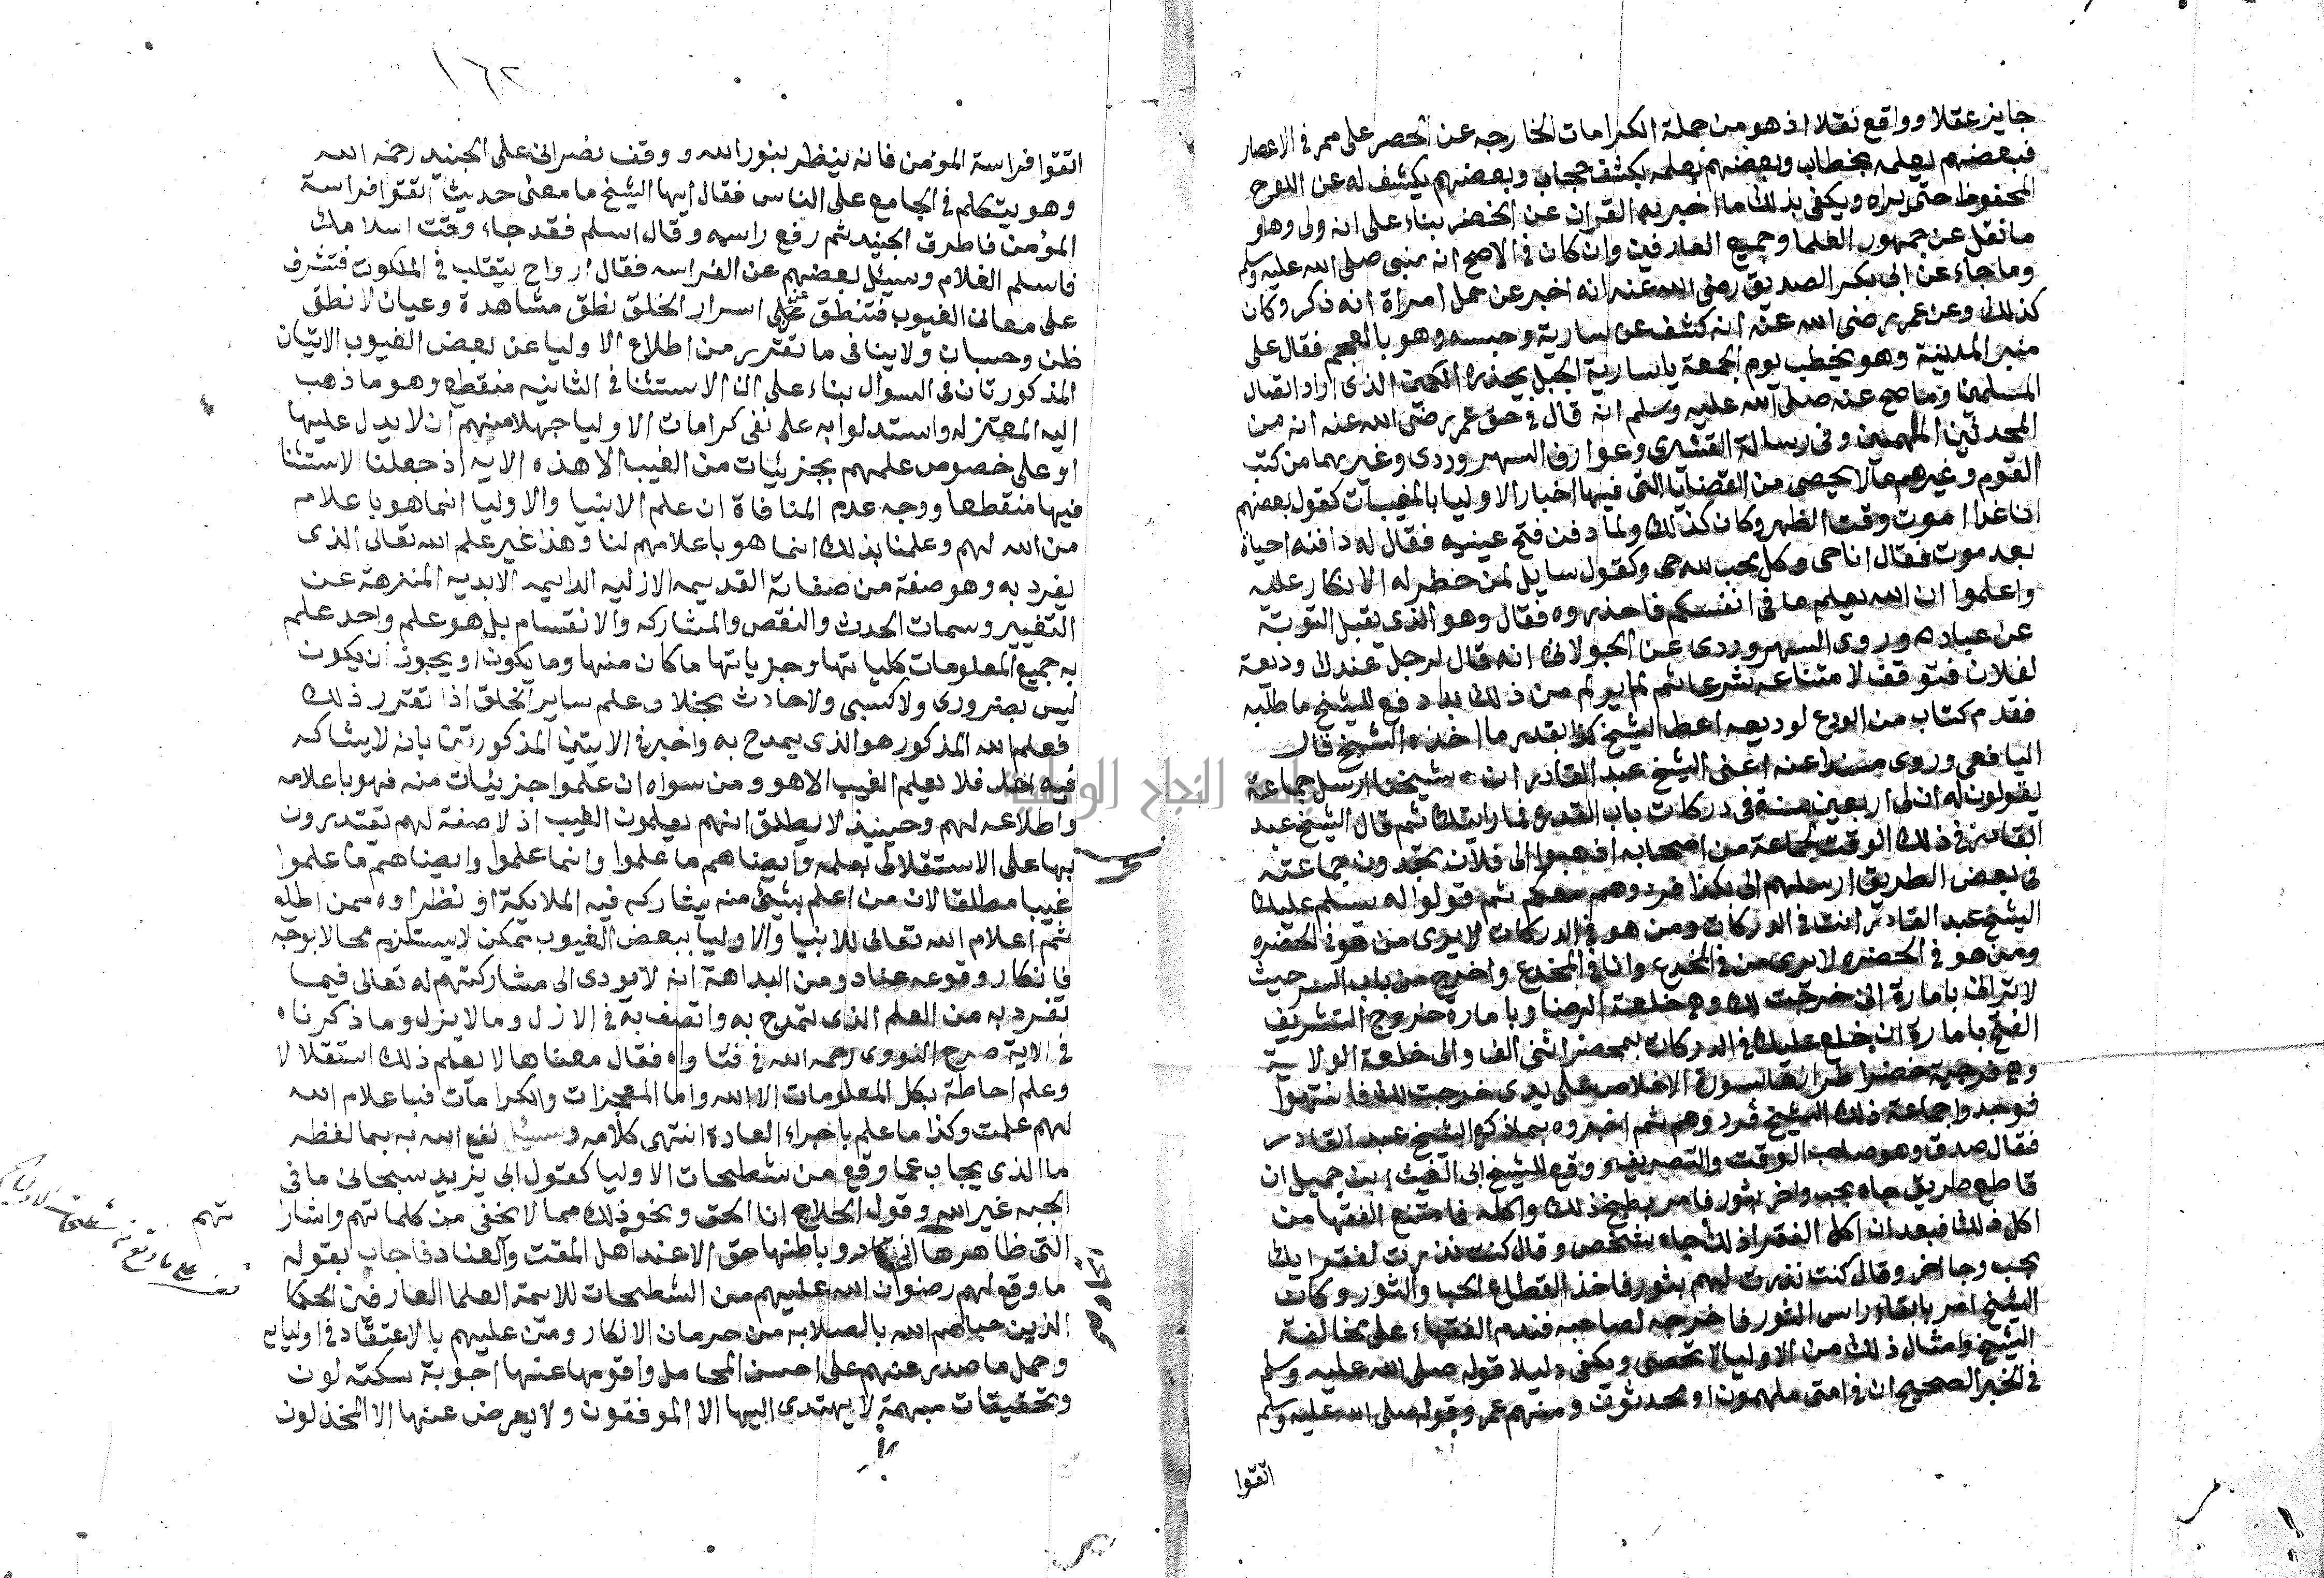 جايز عقلا وواقع نقلا اذ هو من جملة الكرامات الخارجه عن الحصر على ممر في الاعصار
فبعضهم يعلمه بخطاب وبعضهم يعلمه بكشف حجاب وبعضهم يكشف له عن اللوح
المحفوظ حتى يراه ويكفي بذلك ما اخبر به القران عن الخضر بناء على انه ولى وهو
ما نقل عن جمهور العلما وجميع العارفين وان كان في الاصح انه نبي صلى الله عليه وسلم
وما جاء عن ابى بكر الصديق رضى الله عنه انه اخبر عن حمل امراة انه ذكر وكان
كذلك وعن عمر رضى الله عنه انه كشف عن سارية وحبسه وهو بالعجم فقال على
منبر المدينة وهو يخطب يوم الجمعة ياسارية الجبل يحذره الكمين الذى اراد القتال
المسلمين وما صح عنه صلى الله عليه وسلم انه قال في حق عمر رضى الله عنه انه من
المحدثين الملهمين وفى رسالة القشيرى وعوارف السهروردى وغيرهما من كتب
القوم وغيرهم مالا يحصى من القضايا التى فيها اخبار الاوليا بالمغيبات كقول بعضهم
انا غدا اموت وقت الظهر وكان كذلك ولما دفن فتح عينيه فقال له دافنه احياة
بعد موت فقال انا حى وكل محب لله حى وكقول سايل لمن خطر له الانكار عليه
واعلموا ان الله يعلم ما فى انفسكم فاحذروه فقال وهو الذى يقبل التوبة
عن عباده وروى السهروردى عن الجولانى انه قال لرجل عندك وديعة
لفلان فتوقف لامتناعه شرعا ثم لم ير لم من ذلك بد دفع للشيخ ما طلبه
فقدم كتاب من المودع لوديعه اعط الشيخ كذا بقدر ما اخذه الشيخ قال
اليافعى وروى مسندا عنه اعنى الشيخ عبد القادر ان شيخا ارسل جماعة
يقولون له ان لى اربعين سنة فى دركات باب القدره فما رايتك ثم قال الشيخ عبد
القادر فى ذلك الوقت لجماعة من اصحابه اذهبوا الى فلان تجدون جماعته
فى بعض الطريق ارسلهم الى بكذا فردوهم معكم ثم قولوا له يسلم عليك
الشيخ عبد القادر انت فى الدركات ومن هو فى الدركات لا يرى من هو فى الحضره
ومن هو فى الحضره لا يرى من فى المخدع وانا فى المخدع واخرج من باب السر حيث
لا ترانى بامارة انى خرجت لك وهى خلعة الرضا وبامارة خروج التشريف
الفتح بامارة ان خلع عليك فى الدركات بمحضر اثنى الف والى خلعة الولاية
وهى فرجية خضرا طرازها سورة الاخلاص على يدى خرجت لك فانتهوا
فوجدوا جماعة ذلك الشيخ فردوهم ثم اخبروه بما ذكره الشيخ عبد القادر
فقال صدق وهو صاحب الوقت والتصريف ووقع للشيخ ابى الغيث بن جميل ان
قاطع طريق جاه بحب واخر بثور فامر بطبخ ذلك واكله فامتنع الفقها من
اكل ذلك فبعد ان اكل الفقرا ذلك جاه شخص وقال كنت نذرت لفقرايك
بحب وجا اخر وقال كنت نذرت لهم بثور فاخذ القطاع الحب والثور وكان
الشيخ امر بابقاء راس الثور فاخرجه لصاحبه فندم الفقهاء على مخالفة
الشيخ وامثال ذلك من الاوليا لا تحصى ويكفى دليلا قوله صلى الله عليه وسلم
فى الخبر الصحيح ان فى امتى ملهمون او محدثون ومنهم عمر وقوله صلى الله عليه وسلم
اتقوا
١٦٢
اتقوا فراسة المؤمن فانه ينظر بنور الله ووقف نصرانى على الجنيد رحمه الله
وهو يتكلم فى الجامع على الناس فقال ايها الشيخ ما معنى حديث اتقوا فراسة
المؤمن فاطرق الجنيد ثم رفع راسه وقال اسلم فقد جاء وقت اسلامك
فاسلم الغلام وسئل بعضهم عن الفراسه فقال ارواح تتقلب فى الملكوت فتشرف
على معانى الغيوب فتنطق عن اسرار الخلق نطق مشاهدة وعيان لا نطق
ظن وحسبان ولا ينافى ما تقرر من اطلاع الاوليا عن بعض الغيوب الايتان
المذكورتان فى السوال بناء على ان الاستثنا فى الثانيه منقطع وهو ما ذهب
اليه المعتزله واستدلوا به على نفى كرامات الاوليا جهلا منهم ان لا يدل عليها
او على خصوص علمهم بجزئيات من الغيب الا هذه الايه اذ جعلنا الاستثنا
فيها منقطعا ووجه عدم المنافاة ان علم الانبيا والاوليا انما هو باعلام
من الله لهم وعلمنا بذلك انما هو باعلامهم لنا وهذا غير علم الله تعالى الذى
يفرد به وهو صفة من صفاته القديمه الازليه الدايمه الابديه المنزهة عن
التغيير وسمات الحدث والنقص والمشاركه والانقسام بل هو علم واحد علم
به جميع المعلومات كلياتها وجزياتها ما كان منها وما يكون او يجوز ان يكون
ليس بضرورى ولا كسبى ولا حادث بخلاف علم ساير الخلق اذا تقرر ذلك
فعلم الله المذكور هو الذى يمدح به واخبر فى الايتين المذكورتين بانه لا يشاركه
فيه احد فلا يعلم الغيب الا هو ومن سواه ان علموا جزئيات منه فهو باعلامه
واطلاعه لهم وحينيذ لا يطلق انهم يعلمون الغيب اذ لا صفة لهم يقتدرون
بها على الاستقلال بعلمه وايضا هم ما علموا وانما علموا وايضا هم ما علموا
غيبا مطلقا لان من اعلم بشيئ منه يشاركه فيه الملايكة او نظراوه ممن اطلع
ثم اعلام الله تعالى للانبيا والاوليا ببعض الغيوب ممكن لا يستلزم محالا بوجه
فانكار وقوعه عناد ومن البداهة انه لا يودى الى مشاركتهم له تعالى فيما
تفرد به من العلم الذى تمدح به واتصف به فى الازل وما لا يزل وما ذكرناه
فى الاية صرح النووى رحمه الله فى فتاواه فقال معناها لا يعلم ذلك استقلالا
وعلم احاطة بكل المعلومات الا الله واما المعجزات والكرامات فباعلام الله
لهم علمت وكذا ما علم باجراء العادة انتهى كلامه وسئل نفع الله به بما لفظه
ما الذى يجاب عما وقع من شطحات الاوليا كقول ابى يزيد سبحانى ما فى
الجبه غير الله وقول الحلاج انا الحق ونحو ذلك مما لا يخفى من كلماتهم واشارا
تهم
التى ظاهرها وباطنها حق الا عند اهل المقت والعناد فاجاب بقوله
ما وقع لهم رضوان الله عليهم من الشطحات للايمة العلما العارفين الحكما
الذين حباهم الله بالصلابه من حرمان الانكار ومن عليهم بالاعتقاد فى اوليايه
وحمل ما صدر عنهم على احسن المحامل واقومها عنها اجوبة سكته لون
وتحقيقات مبهمة لا يهتدى اليها الا الموفقون ولا يعرض عنها الا المخذلون
النجاح